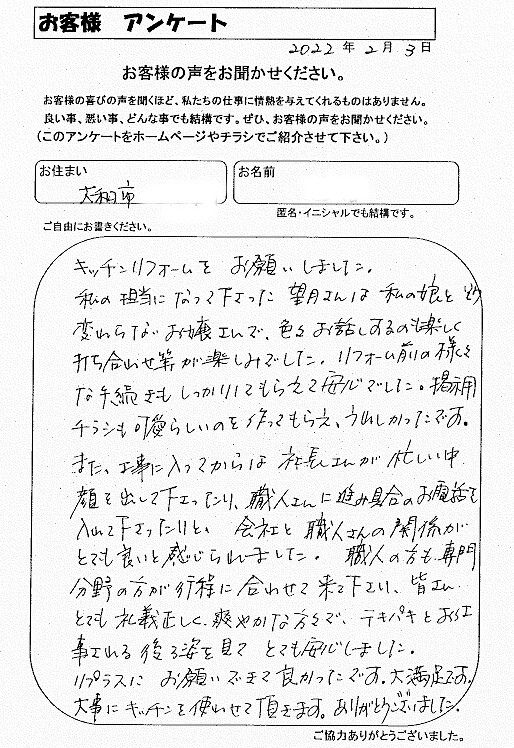 お客様 アンケート
2022年2月3日
お客様の声をお聞かせください。
お客様の喜びの声を聞くほど、私たちの仕事に情熱を与えてくれるものはありません。
良い事、悪い事、どんな事でも結構です。ぜひ、お客様の声をお聞かせください。
(このアンケートをホームページやチラシでご紹介させて下さい。)
お住まい
大和市
お名前
匿名・イニシャルでも結構です。
ご自由にお書きください。
キッチンリフォームを お願いしました。
私の担当になって下さった 望月さんは 私の娘と
変わらないお嬢さんで、色々お話しするのも楽しく
打ち合わせ等が楽しみでした。リフォーム前の様々
な手続きもしっかりしてもらえて安心でした。掲示用
チラシも可愛らしいのを作ってもらえ、うれしかったです。
また、工事に入ってからは 社長さんが 忙しい中
顔を出して下さったり、職人さんに進み具合のお電話を
入れて下さったりと、会社と職人さんの関係が
とても良いと感じられました。職人の方も、専門
分野の方が行程に合わせて来て下さり、皆さん
とても礼義正しく、爽やかな方々で、テキパキとお仕
事される後ろ姿を見て とても安心しました。
リプラスに お願いできて良かったです。大満足です。
大事にキッチンを使わせて頂きます。ありがとうございました。
ご協力ありがとうございました。